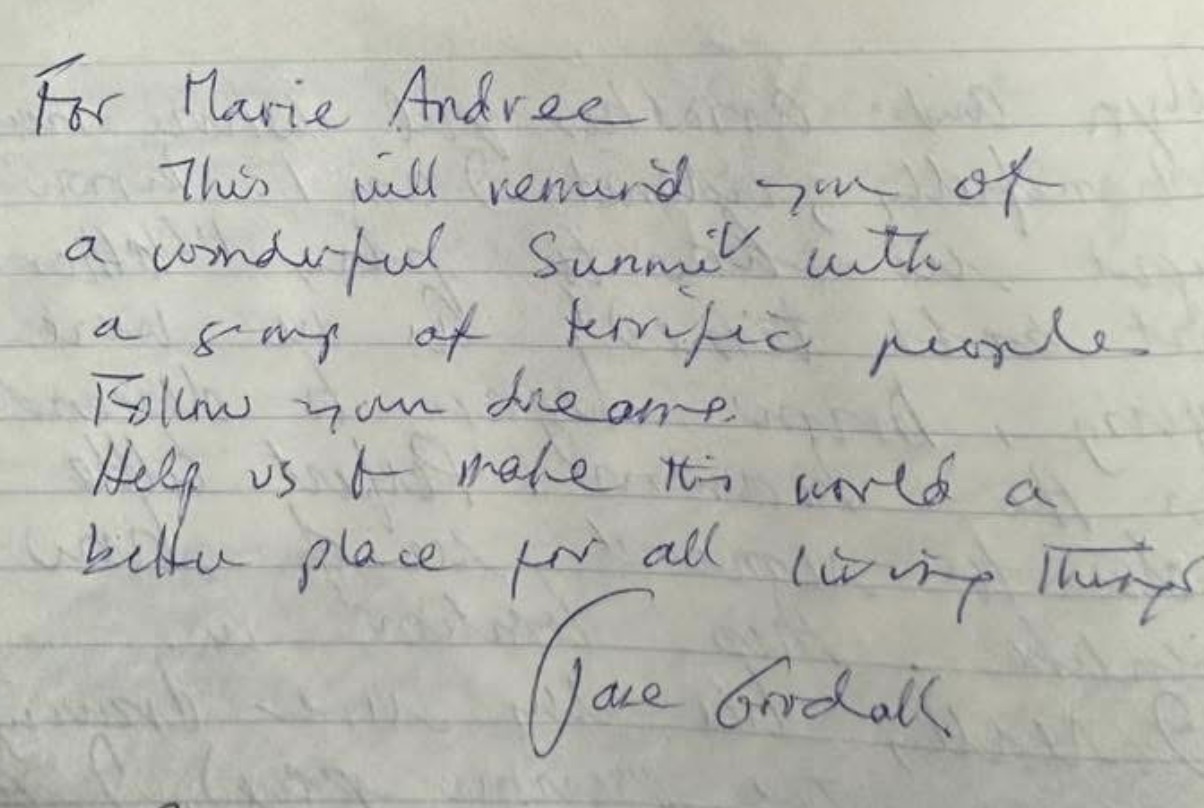 For Marie Andree
This will remind you of
a wonderful Summit with
a group of terrific people
Follow your dreams.
Help us to make this world a
better place for all living things
Jane Goodall